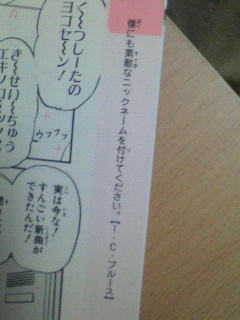 僕にも素敵なニックネームを付けてください。【I・C・ブルース】
く〜つしーたの
ヨコセ〜ン!
き〜せい〜ちゅう
ウフフフ
実は今な!
すんごい新曲が
できたんだ!